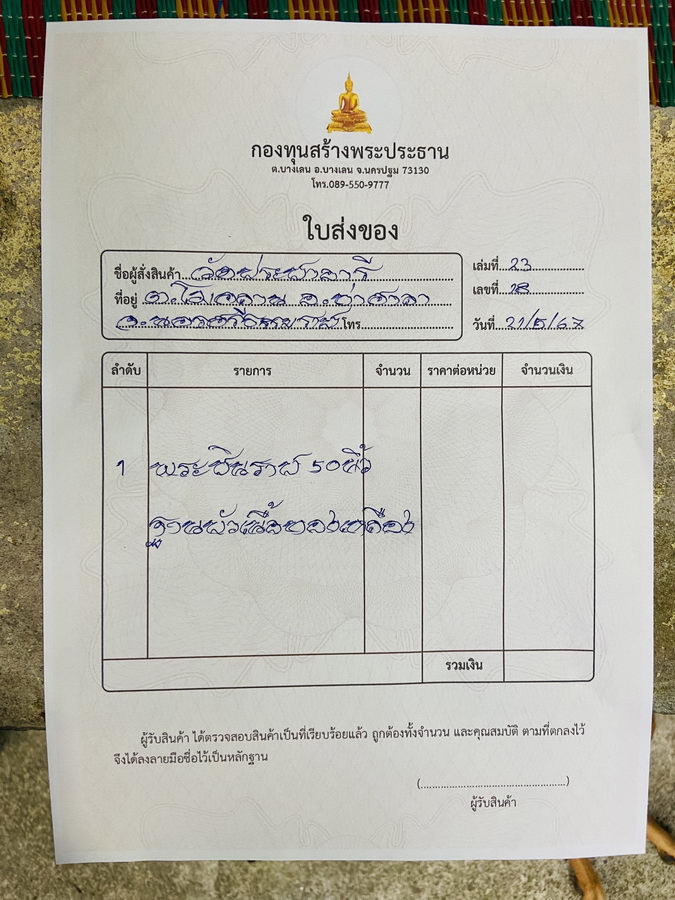 กองทุนสร้างพระประธาน
ต.บางเลน อ.บางเลน จ.นครปฐม 73130
โทร.089-550-9777
ใบส่งของ
ชื่อผู้สั่งสินค้า วัดประชาธารี
เล่มที่ 23
ที่อยู่ ต.โมคลาน อ.ท่าศาลา
เลขที่ 18
จ.นครศรีธรรมราช โทร.
วันที่ 21/5/67
ลำดับ รายการ จำนวน ราคาต่อหน่วย จำนวนเงิน
1 พระชินราช 50 นิ้ว
ฐานบัวเนื้อทองเหลือง
รวมเงิน
ผู้รับสินค้า ได้ตรวจสอบสินค้าเป็นที่เรียบร้อยแล้ว ถูกต้องทั้งจำนวน และคุณสมบัติ ตามที่ตกลงไว้
จึงได้ลงลายมือชื่อไว้เป็นหลักฐาน
(................................................)
ผู้รับสินค้า